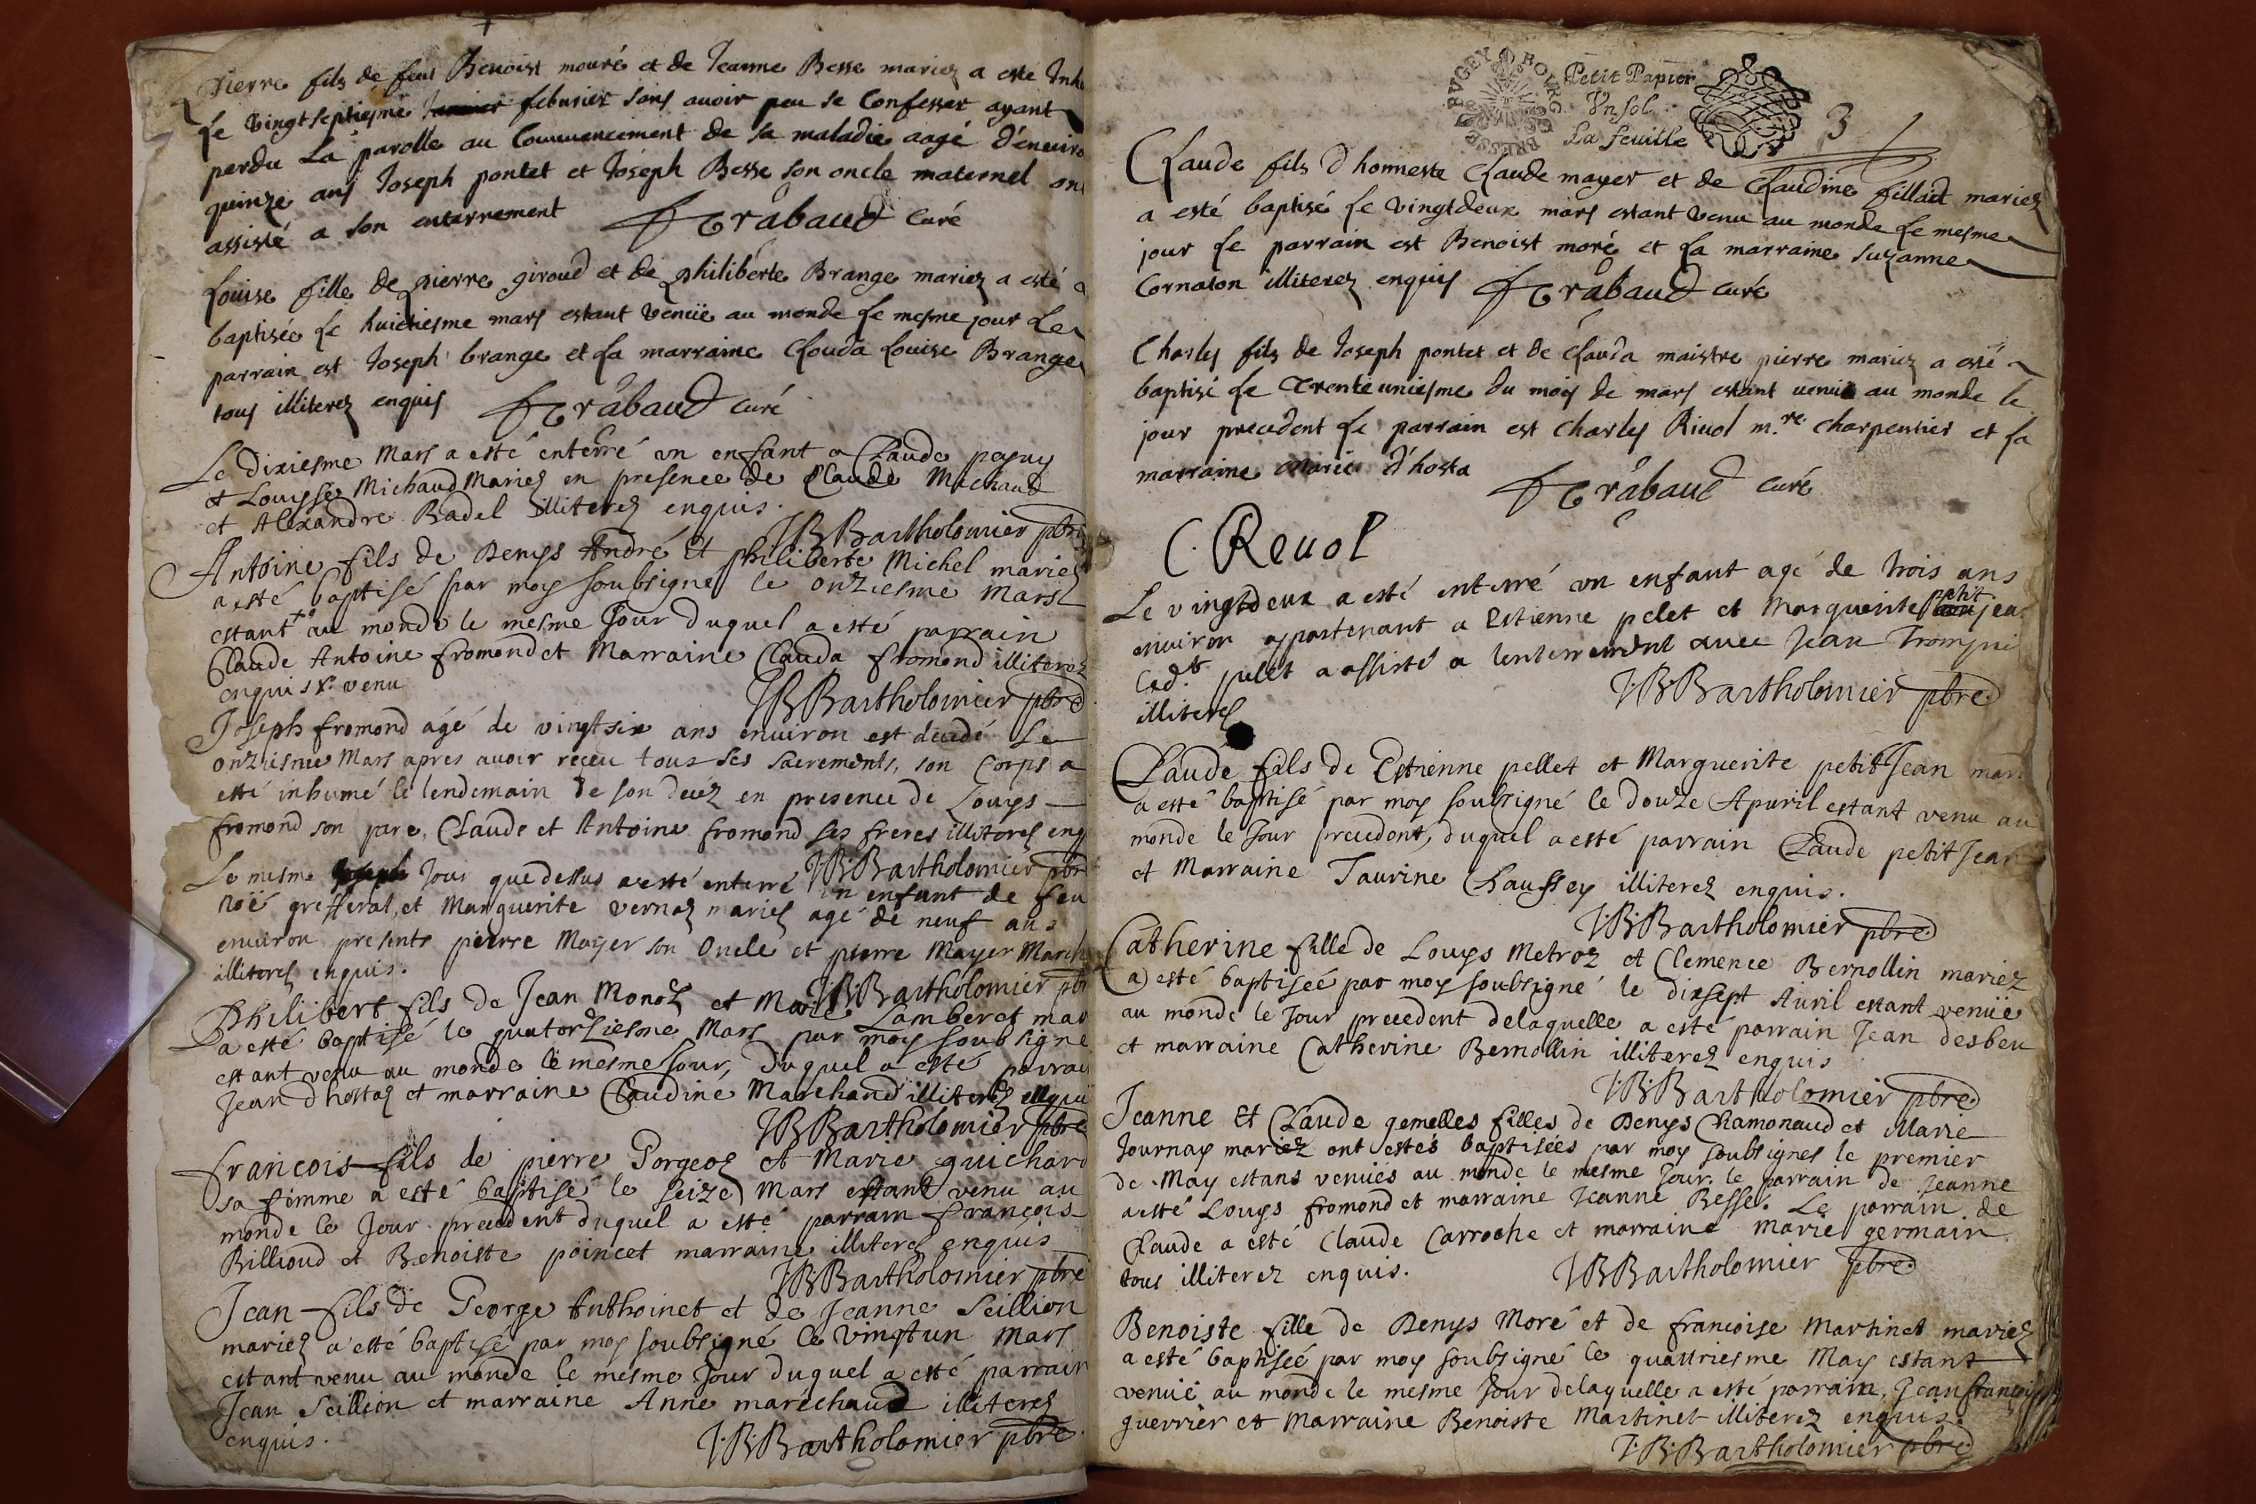 Pierre fils de feu Benoist mouré et de Jeanne Besse mariez a esté Inh
le vingtseptiesme febvrier sans avoir peu se Confesser ayant
perdu La parolle au Commencement de sa maladie aagé d'enviro
quinze ans Joseph pontet et Joseph Besse son oncle maternel on
assisté a son enterrement Trabaud Curé
Louise fille de pierre giroud et de philiberte Brange mariez a esté
baptisée le huictiesme mars estant venüe au monde le mesme jour Le
parrain est Joseph brange et la marraine Clauda Louise Brange
tous illiterez enquis Trabaud curé
Le dixiesme Mars a esté enterré un enfant a Claude
et Louysse Michaud Mariez en presence de Claude Michaud
et Alexandre Badel illiterez enquis.
J.B. Bartholomier pbre
Antoine fils de Denys André et philiberte Michel mariez
a esté baptisé par moy soubsigné le onziesme Mars
estant +° au monde le mesme Jour duquel a esté parrain
Claude Antoine fromond et Marraine Clauda fromond illiterez
enquis +° venu
J.B. Bartholomier pbre
Joseph fromond agé de vingtsix ans environ est decedé Le
onziesme Mars apres avoir receu tous ses sacrements, son Corps a
esté inhumé le lendemain de son decez en presence de Louys
fromond son pere, Claude et Antoine fromond ses freres illiterez enq
J.B. Bartholomier pbre
Le mesme Jour que dessus a esté enterré un enfant de feu
Noë grefferat, et Marguerite vernaz mariez agé de neuf ans
environ presents pierre Mayer son Oncle et pierre Mayer March
illiterez enquis.
J.B. Bartholomier pbr
Philibert fils de Jean Monoz et Marie Lamberet mar
a esté baptisé le quatorziesme Mars par moy soubsigné
estant venu au monde le mesme Jour, duquel a esté parrai
Jean dhostaz et marraine Claudine Marchand illiterez enqui
J.B. Bartholomier pbre
francois fils de pierre Gorgeoz et Marie guichard
sa femme a esté baptisé le seize Mars estant venu au
monde le Jour precedent duquel a esté parrain françois
Billioud et Benoiste poincet marraine illiterez enquis
J.B. Bartholomier pbre
Jean fils de George Anthoinet et de Jeanne Seillion
mariez a esté baptisé par moy soubsigné le vingt un Mars
estant venu au monde le mesme Jour duquel a esté parrain
Jean Seillion et marraine Anne maréchaud illiterez
enquis.
J.B. Bartholomier pbre.
BVGEY BOVRG BRESSE
Petit Papier
Vn sol
La feuille
3
Claude fils d honneste Claude mayer et de Claudine fillad mariez
a esté baptisé le vingtdeux mars estant venu au monde le mesme
jour le parrain est Benoist moré et la marraine Suzanne
Cornaton illiterez enquis Trabaud curé
Charles fils de Joseph pontet et de Clauda maistre pierre mariez a esté
baptisé le trenteuniesme du mois de mars estant venu au monde le
jour precedent le parrain est Charles Rivol m.re charpentier et la
marraine Marie d'hosta
Trabaud Curé
C. Revol
Le vingtdeux a esté enterré un enfant agé de trois ans
environ appartenant a Estienne pelet et Marguerite petit jea
Led.t pelet a assisté a lenterrement avec Jean
illiterez
J.B. Bartholomier pbre
Claude fils de Estienne pellet et Marguerite petit Jean mari
a esté baptisé par moy soubsigné le douze Apvril estant venu au
monde le Jour precedent, duquel a esté parrain Claude petit Jean
et Marraine Taurine Chaussey illiterez enquis.
J.B. Bartholomier pbre
Catherine fille de Louys Metroz et Clemence Bernollin mariez
a esté baptiseé par moy soubsigné le dixsept Avril estant venüe
au monde le Jour precedent delaquelle a esté parrain Jean desbeu
et marraine Catherine Bernollin illiterez enquis
J.B. Bartholomier pbre
Jeanne et Claude gemelles filles de Denys Chamonaud et Marie
Journay mariez ont estés baptisées par moy soubsigné le premier
de May estans venües au monde le mesme Jour. le parrain de Jeanne
a esté Louys fromond et marraine Jeanne Besse. Le parrain de
Claude a esté Claude Carroche et marraine marie germain
tous illiterez enquis.
J.B. Bartholomier pbre
Benoiste fille de Denys Moré et de francoise Martinet mariez
a esté baptiseé par moy soubsigné le quatriesme May estant
venüe au monde le mesme Jour delaquelle a esté parrain Jean françois
guerrier et Marraine Benoiste Martinet illiterez enquis.
J.B. Bartholomier pbre